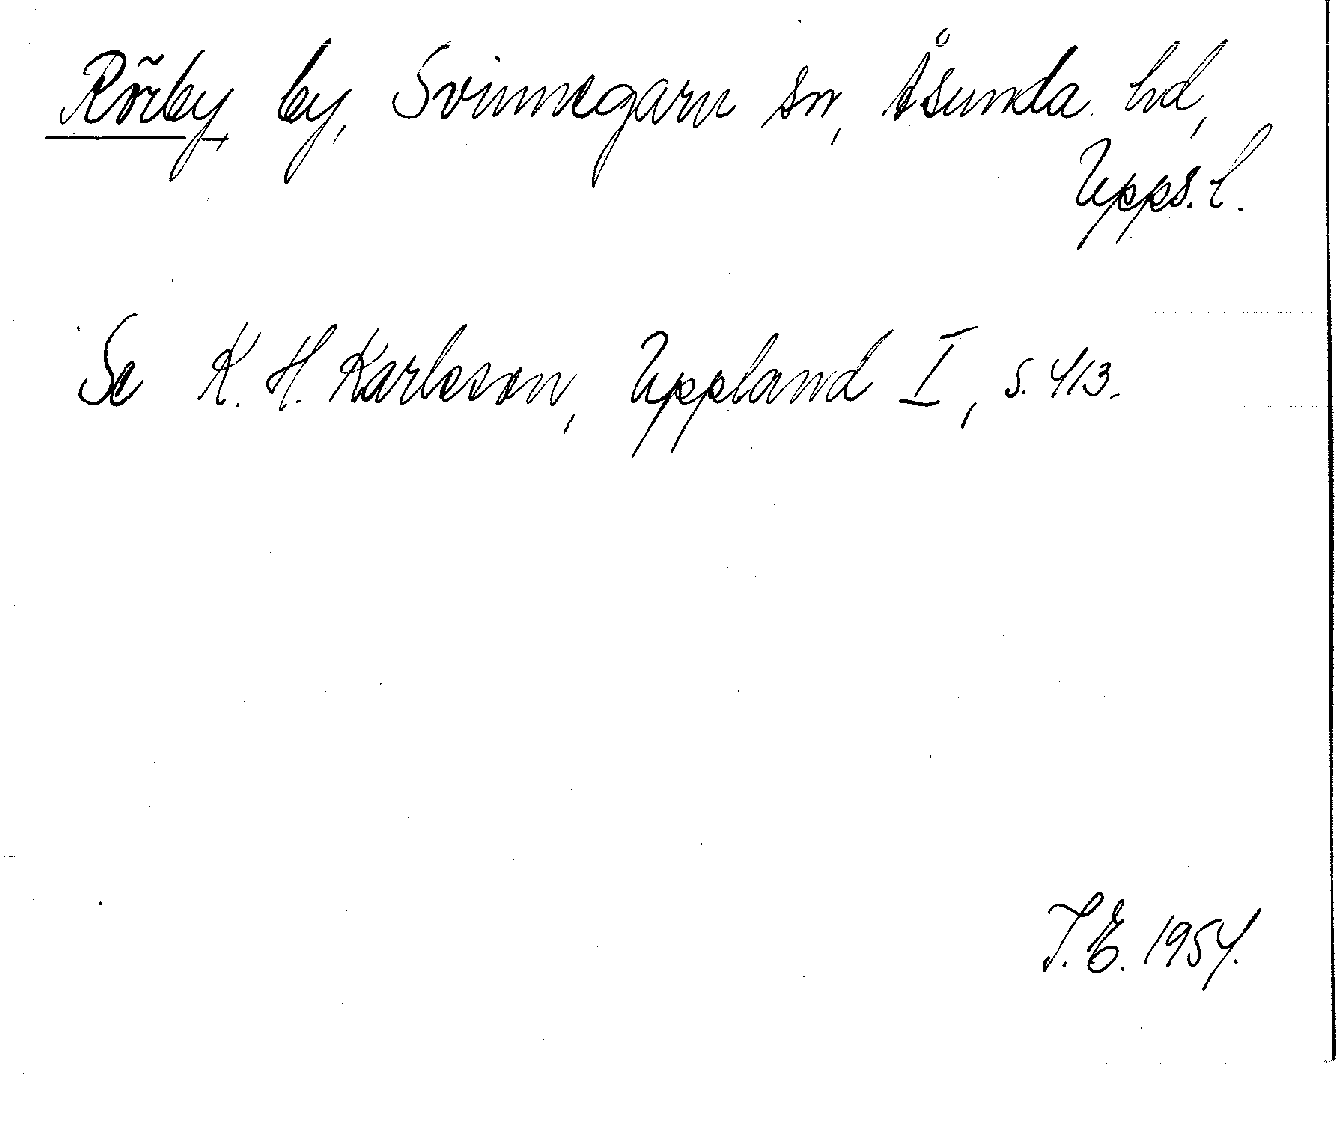 Rörby by, Svinnegarn sn, Åsunda hd,
Upps. l.
Se K. H. Karlsson, Uppland I, s. 413.
T.E. 1954.